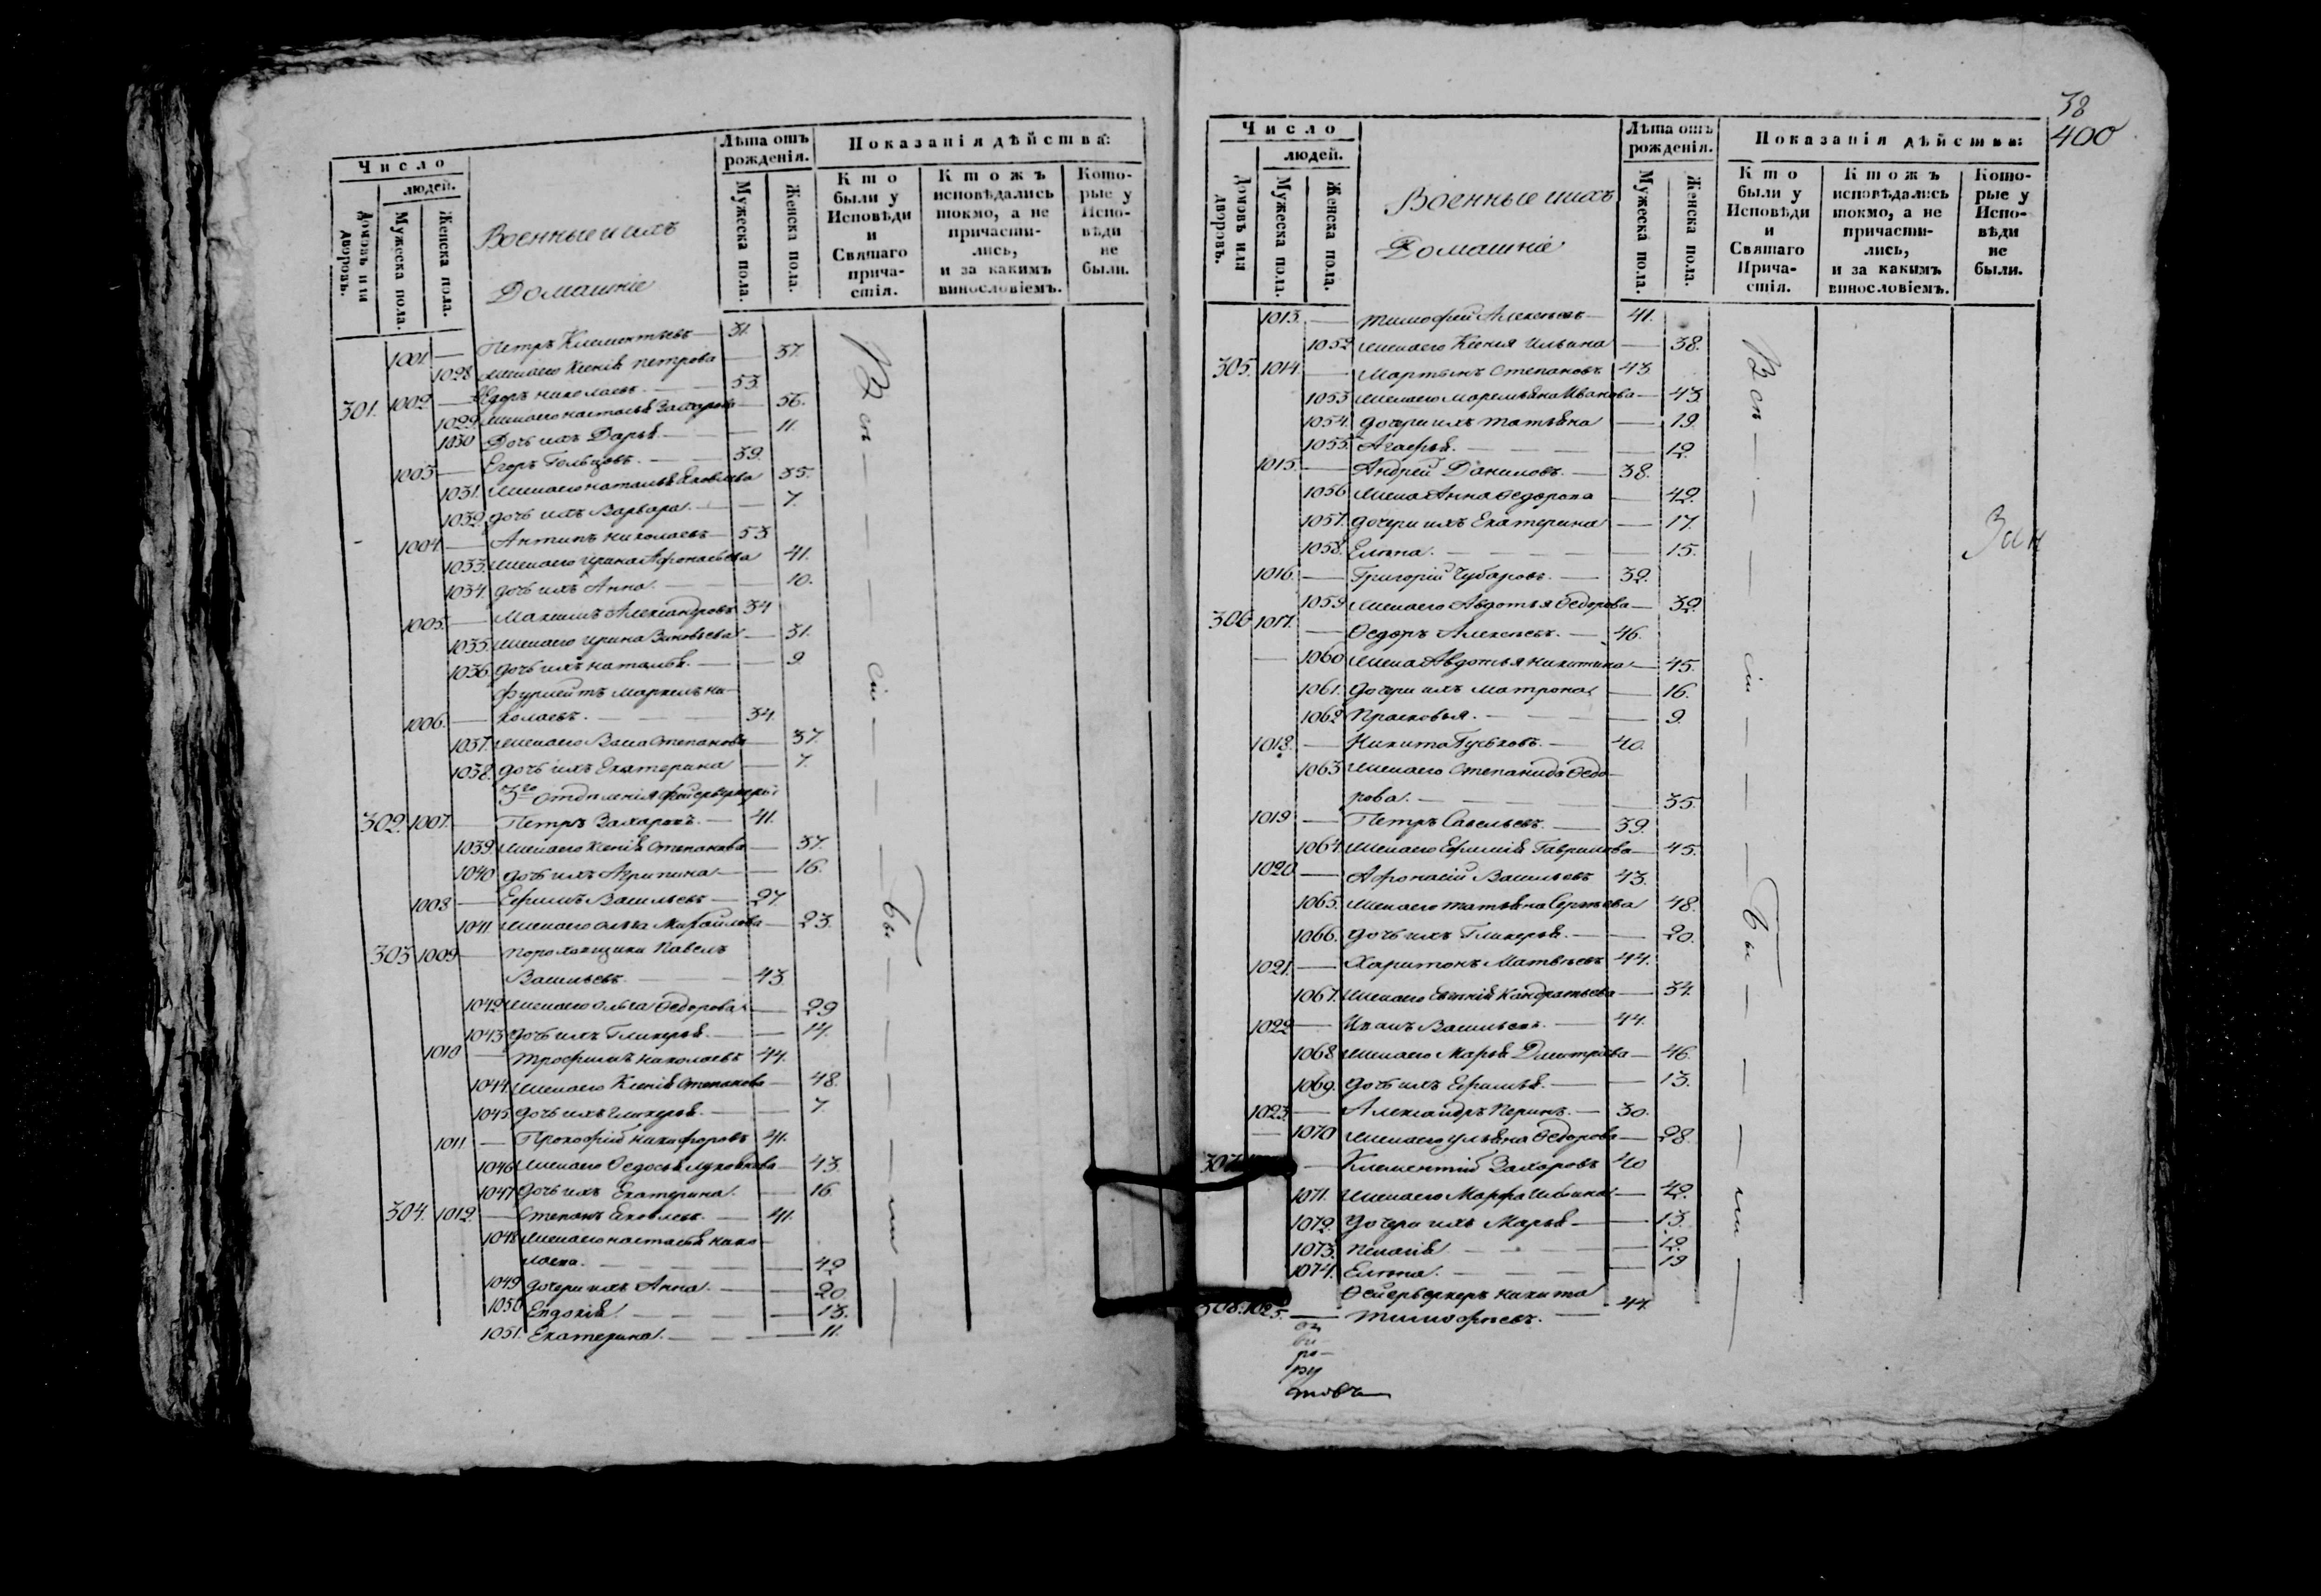 Число
людей.
Домовъ или дворовъ.
Мужеска пола.
Женска пола.
Военные и ихъ
Домашніе
Лѣта отъ
рожденія.
Мужеска пола.
Женска пола.
Показанія дѣйства:
Кто
были у
Исповѣди
и
Святаго
прича-
стія.
Ктожъ
исповѣдались
токмо, а не
причасти-
лись,
и за какимъ
винословіемъ.
Кото-
рые у
Испо-
вѣди
не
были.
1001. — Петръ Климентьевъ — 31.
1028 жена его Ксенія Петрова — 37.
301. 1002 — Ѳедоръ Николаевъ. — 53.
1029. жена его Настасья Захарова — 56.
1030 Дочь ихъ Дарья. — 11.
1003 — Егоръ Гольцовъ. — 39.
1031. жена его Наталья Яковлева 35.
1032. дочь ихъ Варвара. — 7.
1004 — Антипъ Николаевъ — 53.
1033. жена его Ирина Афонасьева 41.
1034. дочь ихъ Анна. — 10.
1005. — Максимъ Александровъ 34
1035. жена его Ирина Зиновьева — 31.
1036. дочь ихъ Наталья. — 9.
Фурлейтъ Маркелъ Ни-
1006. — колаевъ. — 34.
1037. жена его Васа Степанова — 37.
1038. дочь ихъ Екатерина — 7.
3го отдѣленія фейерверкеры
302. 1007. — Петръ Захаровъ. — 41.
1039. жена его Ксенія Степанова — 37.
1040 дочь ихъ Агрипина — 16.
1008 — Ефимъ Васильевъ — 27.
1041 жена его Ольга Михайлова — 23.
303 1009 — Пороховщики Павелъ
Васильевъ. — 43.
1042 жена его Ольга Ѳедорова — 29
1043 дочь ихъ Гликерья. — 14.
1010 — Трофимъ Николаевъ 44.
1044. жена его Ксенія Степанова — 48.
1045 дочь ихъ Гликерья. — 7.
1011 — Прокофій Никифоровъ 41.
1046 жена его Ѳедосья — 43.
1047 дочь ихъ Екатерина. — 16.
304. 1012. — Степанъ Яковлевъ. — 41.
1048 жена его Настасья Нико-
лаева. — 42
1049 дочери ихъ Анна. — 20.
1050 Евдокія. — 13.
1051. Екатерина. — 11.
Всѣ — сіи — бы — ли
38
400
Число
людей.
Домовъ или дворовъ.
Мужеска пола.
Женска пола.
Военные и ихъ
Домашніе
Лѣта отъ
рожденія.
Мужеска пола.
Женска пола.
Показанія дѣйства:
Кто
были у
Исповѣди
и
Святаго
Прича-
стія.
Ктожъ
исповѣдались
токмо, а не
причасти-
лись,
и за какимъ
винословіемъ.
Кото-
рые у
Испо-
вѣди
не
были.
1013. — Тимофей Алексѣевъ — 41.
1052 жена его Ксенія Ильина — 38.
305. 1014. — Мартынъ Степановъ 43
1053 жена его Маремьяна Иванова — 43.
1054. дочери ихъ Татьяна — 19.
1055. Агафья. — 12.
1015. — Андрей Даниловъ. — 38.
1056 жена Анна Ѳедорова — 42.
1057. дочери ихъ Екатерина — 17.
1058. Елѣна. — 15.
1016. — Григорій Чубаровъ. — 32.
1059 жена его Авдотья Ѳедорова — 32.
306 1017. — Ѳедоръ Алексѣевъ. — 46.
1060 жена Авдотья Никитина — 45.
1061. дочери ихъ Матрона — 16.
1062 Прасковья. — 9.
1018. — Никита Гуськовъ. — 40.
1063 жена его Степанида Ѳедо-
рова. — 35.
1019 — Петръ Савельевъ. — 39.
1064 жена его Ефимія Гаврилова — 45.
1020 — Афонасій Васильевъ 43.
1065. жена его Татьяна Сергѣева 48.
1066. дочь ихъ Гликерья. — 20.
1021. — Харитонъ Матвѣевъ 44.
1067. жена его Евгенія Кондратьева — 34.
1022 — Иванъ Васильевъ. — 44.
1068 жена его Марья Дмитріева — 46.
1069. дочь ихъ Ефимья. — 13.
1023 — Александръ Перинъ. — 30.
1070 жена его Ульяна Ѳедорова — 28.
307. — Климентій Захаровъ 40
1071. жена его Марфа Ильина — 42.
1072. дочери ихъ Марья — 13.
1073. Пелагія. — 12.
1074. Елѣна. — 19
Фейерверкеръ Никита
308. 1025. — Тимофѣевъ. — 44.
Всѣ — сіи — бы — ли
ру
товъ